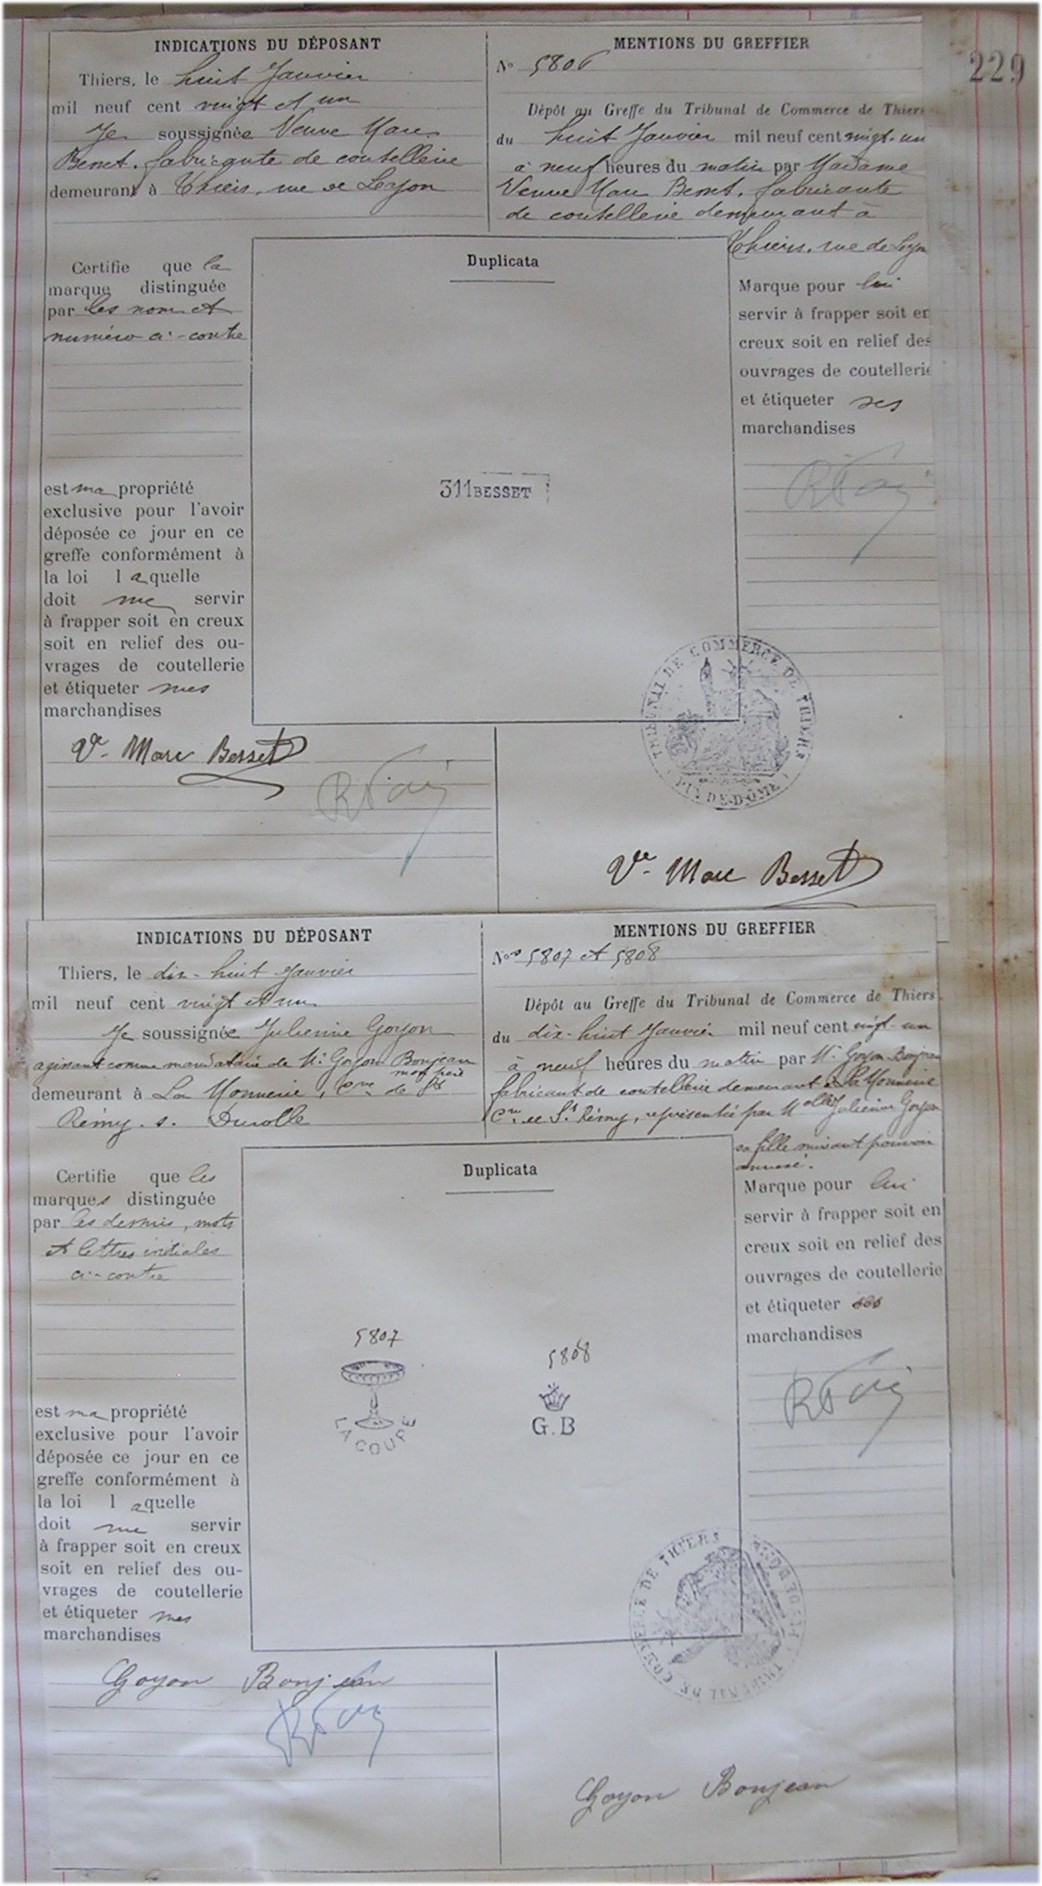 229
INDICATIONS DU DÉPOSANT
Thiers, le huit Janvier
mil neuf cent vingt et un
Je soussignée Veuve Marc
Besset, fabricante de coutellerie
demeurant à Thiers, rue de Lyon
MENTIONS DU GREFFIER
No 5806
Dépôt au Greffe du Tribunal de Commerce de Thiers
du huit Janvier mil neuf cent vingt-un
à neuf heures du matin par Madame
Veuve Marc Besset, fabricante
de coutellerie demeurant à
Thiers, rue de Lyon
Certifie que la
marque distinguée
par les nom et
numéro ci-contre
est ma propriété
exclusive pour l'avoir
déposée ce jour en ce
greffe conformément à
la loi laquelle
doit me servir
à frapper soit en creux
soit en relief des ou-
vrages de coutellerie
et étiqueter mes
marchandises
Duplicata
311 BESSET
Marque pour lui
servir à frapper soit en
creux soit en relief des
ouvrages de coutellerie
et étiqueter ses
marchandises
TRIBUNAL DE COMMERCE DE THIERS
PUY-DE-DÔME
Ve Marc Besset
Vve Marc Besset
INDICATIONS DU DÉPOSANT
Thiers, le dix-huit Janvier
mil neuf cent vingt et un
Je soussignée Julienne Goyon
agissant comme mandataire de Mr Goyon Bonjean
mon père
demeurant à La Monnerie, Cne de St
Rémy s. Durolle
MENTIONS DU GREFFIER
Nos 5807 et 5808
Dépôt au Greffe du Tribunal de Commerce de Thiers
du dix-huit Janvier mil neuf cent vingt-un
à neuf heures du matin par Mr Goyon Bonjean
fabricant de coutellerie demeurant à La Monnerie
Cne de St Rémy, représenté par Melle Julienne Goyon
sa fille suivant pouvoir
annexé.
Certifie que les
marques distinguée
par les dessins, mots
et lettres initiales
ci-contre
est ma propriété
exclusive pour l'avoir
déposée ce jour en ce
greffe conformément à
la loi laquelle
doit me servir
à frapper soit en creux
soit en relief des ou-
vrages de coutellerie
et étiqueter mes
marchandises
Duplicata
5807
LA COUPE
5808
G.B
Marque pour lui
servir à frapper soit en
creux soit en relief des
ouvrages de coutellerie
et étiqueter ses
marchandises
TRIBUNAL DE COMMERCE DE THIERS
PUY-DE-DÔME
Goyon Bonjean
Goyon Bonjean